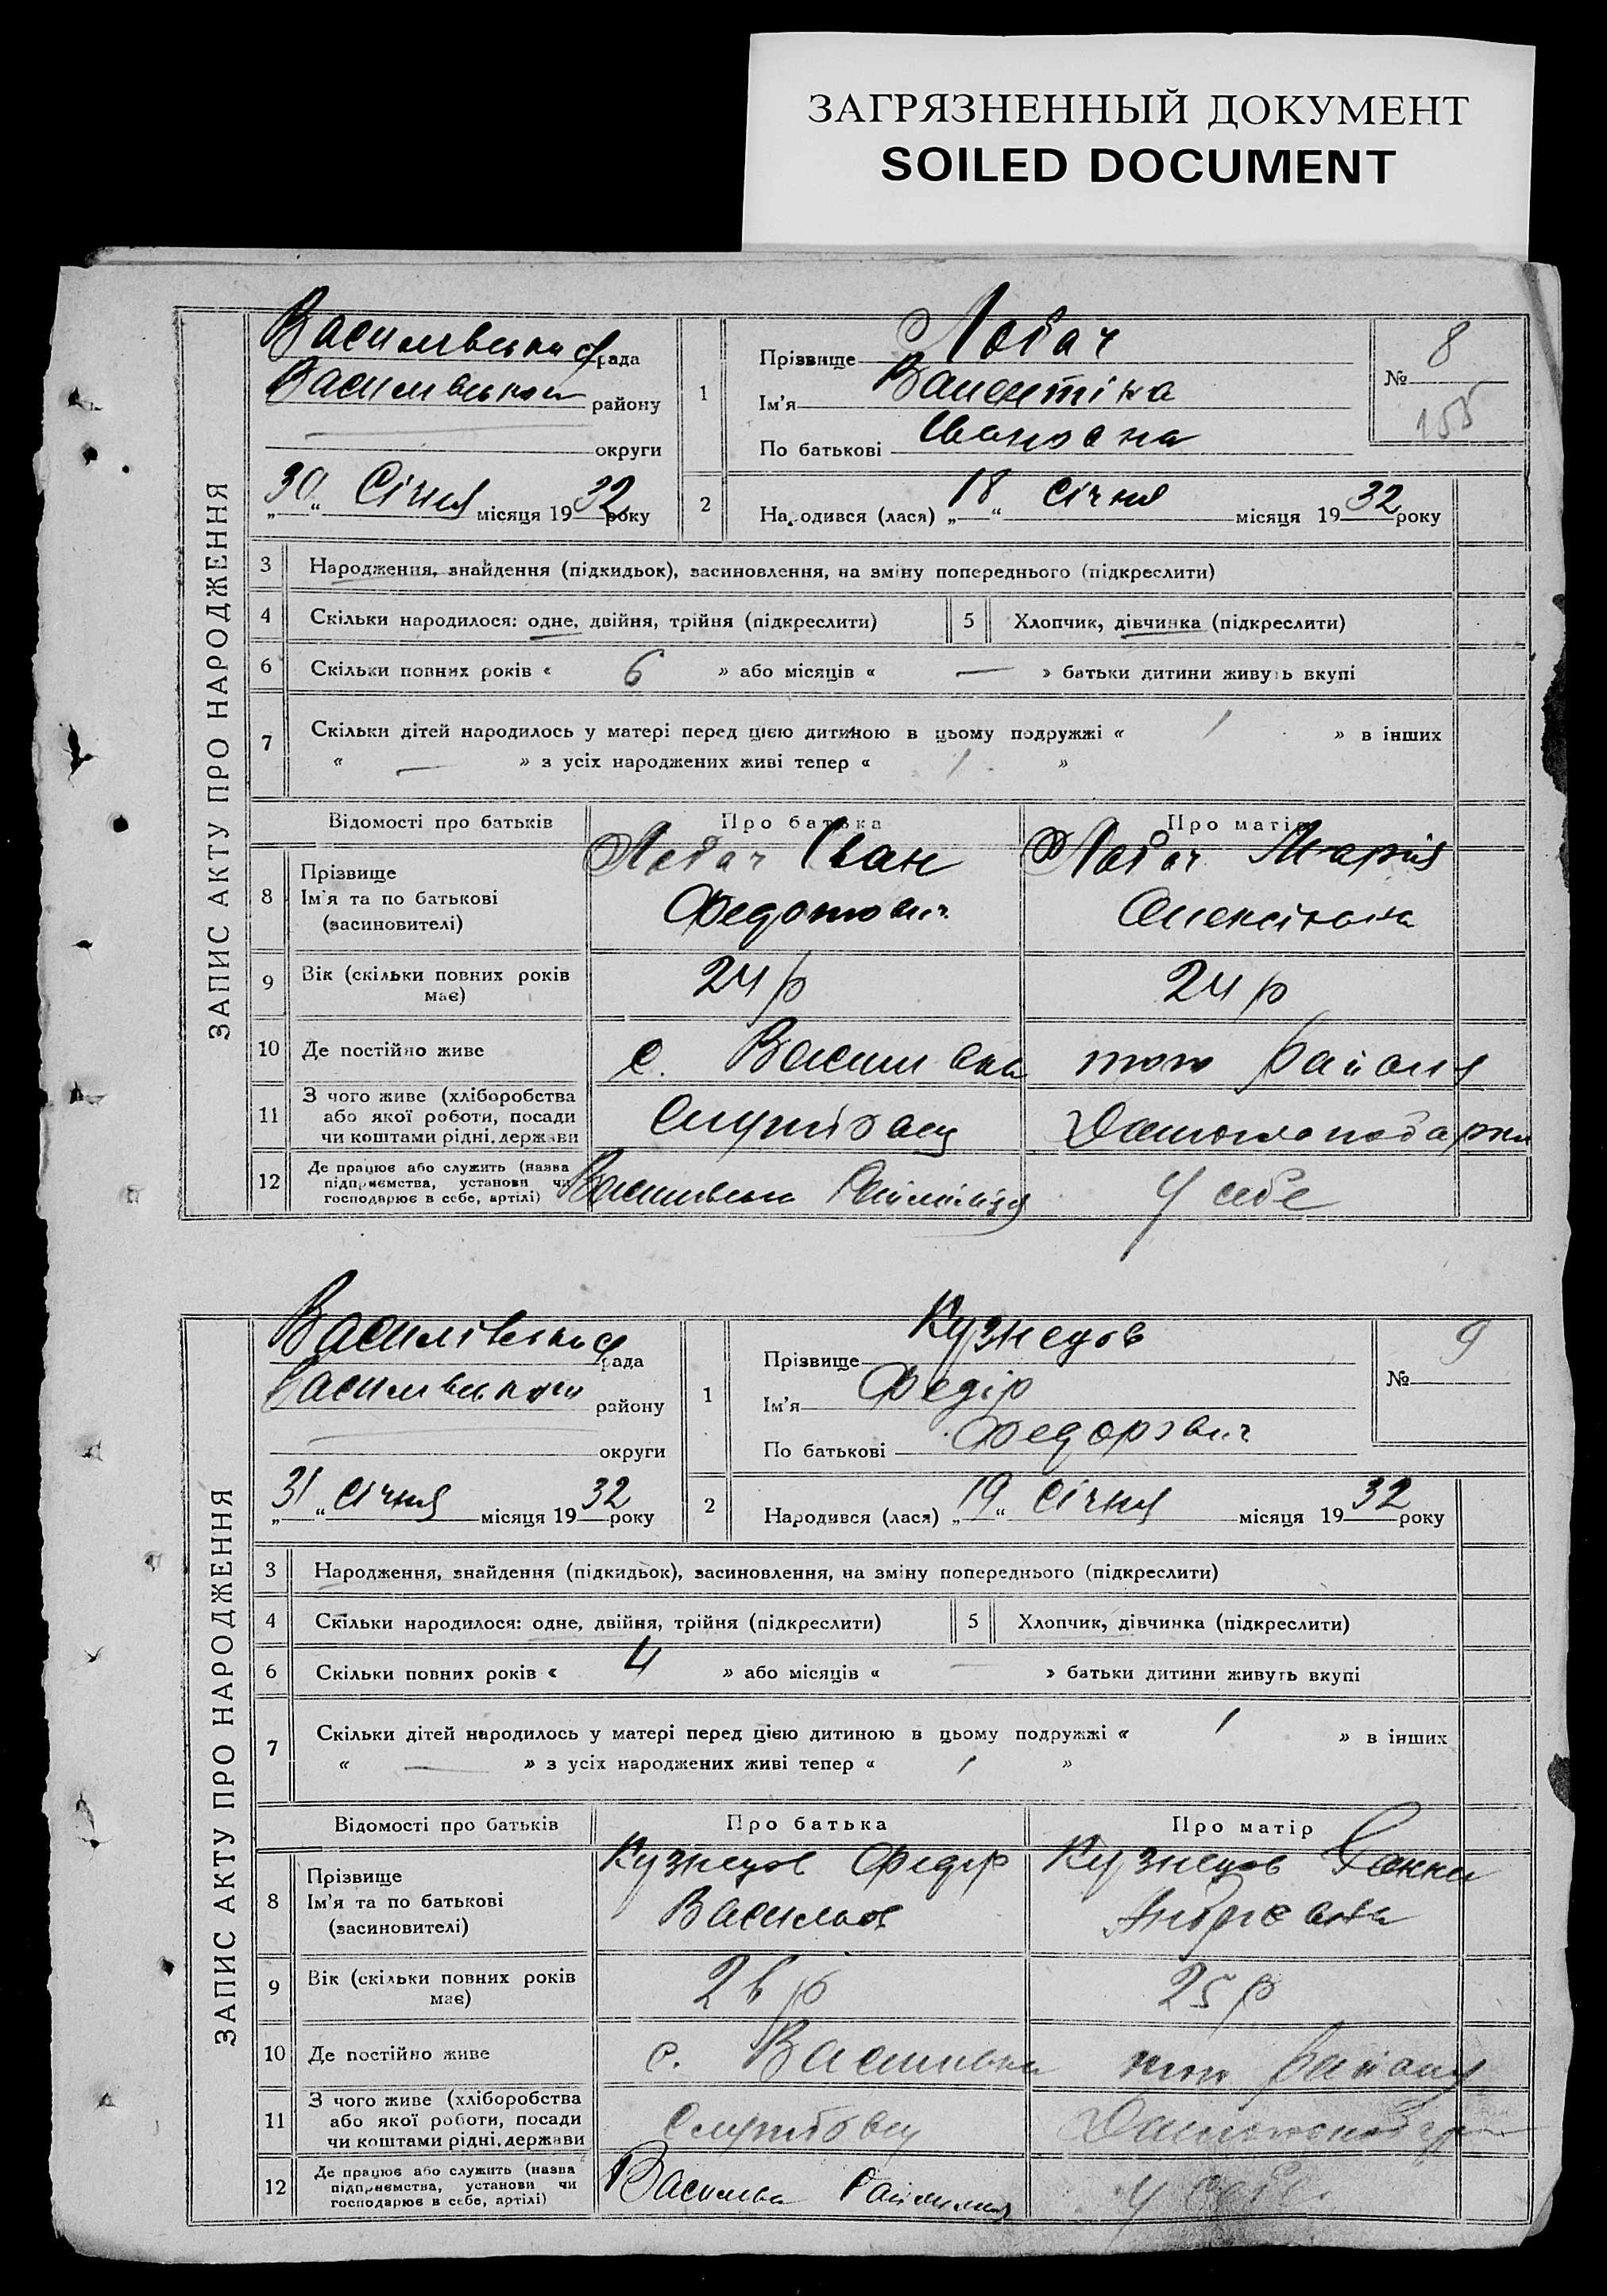 ЗАГРЯЗНЕННЫЙ ДОКУМЕНТ
SOILED DOCUMENT
ЗАПИС АКТУ ПРО НАРОДЖЕННЯ
Василівська рада
Василівського району
округи
„30“ Січня місяця 1932 року
1
Прізвище Лобач
Ім'я Валентіна
По батькові Івановна
№ 8
155
2
Народився (лася) „18“ січня місяця 1932 року
3 Народження, знайдення (підкидьок), засиновлення, на зміну попереднього (підкреслити)
4 Скільки народилося: одне, двійня, трійня (підкреслити) 5 Хлопчик, дівчинка (підкреслити)
6 Скільки повних років « 6 » або місяців « — » батьки дитини живуть вкупі
7 Скільки дітей народилось у матері перед цією дитиною в цьому подружжі « 1 » в інших
« — » з усіх народжених живі тепер « 1 »
Відомості про батьків Про батька Про матір
8 Прізвище
Ім'я та по батькові
(засиновителі)
Лобач Іван
Федотович
Лобач Марія
Олексіївна
9 Вік (скільки повних років
має)
24 р
24 р
10 Де постійно живе с. Василівка того району
11 З чого живе (хліборобства
або якої роботи, посади
чи коштами рідні, держави
Службовец Домогосподарка
12 Де працює або служить (назва
підприємства, установи чи
господарює в себе, артілі)
Василівська У себе
ЗАПИС АКТУ ПРО НАРОДЖЕННЯ
Василівська рада
Василівського району
округи
„31“ Січня місяця 1932 року
1
Прізвище Кузнецов
Ім'я Федір
По батькові Федорович
№ 9
2
Народився (лася) „19“ Січня місяця 1932 року
3 Народження, знайдення (підкидьок), засиновлення, на зміну попереднього (підкреслити)
4 Скільки народилося: одне, двійня, трійня (підкреслити) 5 Хлопчик, дівчинка (підкреслити)
6 Скільки повних років « 4 » або місяців « — » батьки дитини живуть вкупі
7 Скільки дітей народилось у матері перед цією дитиною в цьому подружжі « 1 » в інших
« — » з усіх народжених живі тепер « 1 »
Відомості про батьків Про батька Про матір
8 Прізвище
Ім'я та по батькові
(засиновителі)
Кузнецов Федір
Васильов
Кузнецов Ганна
Андреевна
9 Вік (скільки повних років
має)
26 р
25 р
10 Де постійно живе с. Василівка того району
11 З чого живе (хліборобства
або якої роботи, посади
чи коштами рідні, держави
Службовец Домогосподарка
12 Де працює або служить (назва
підприємства, установи чи
господарює в себе, артілі)
У себе